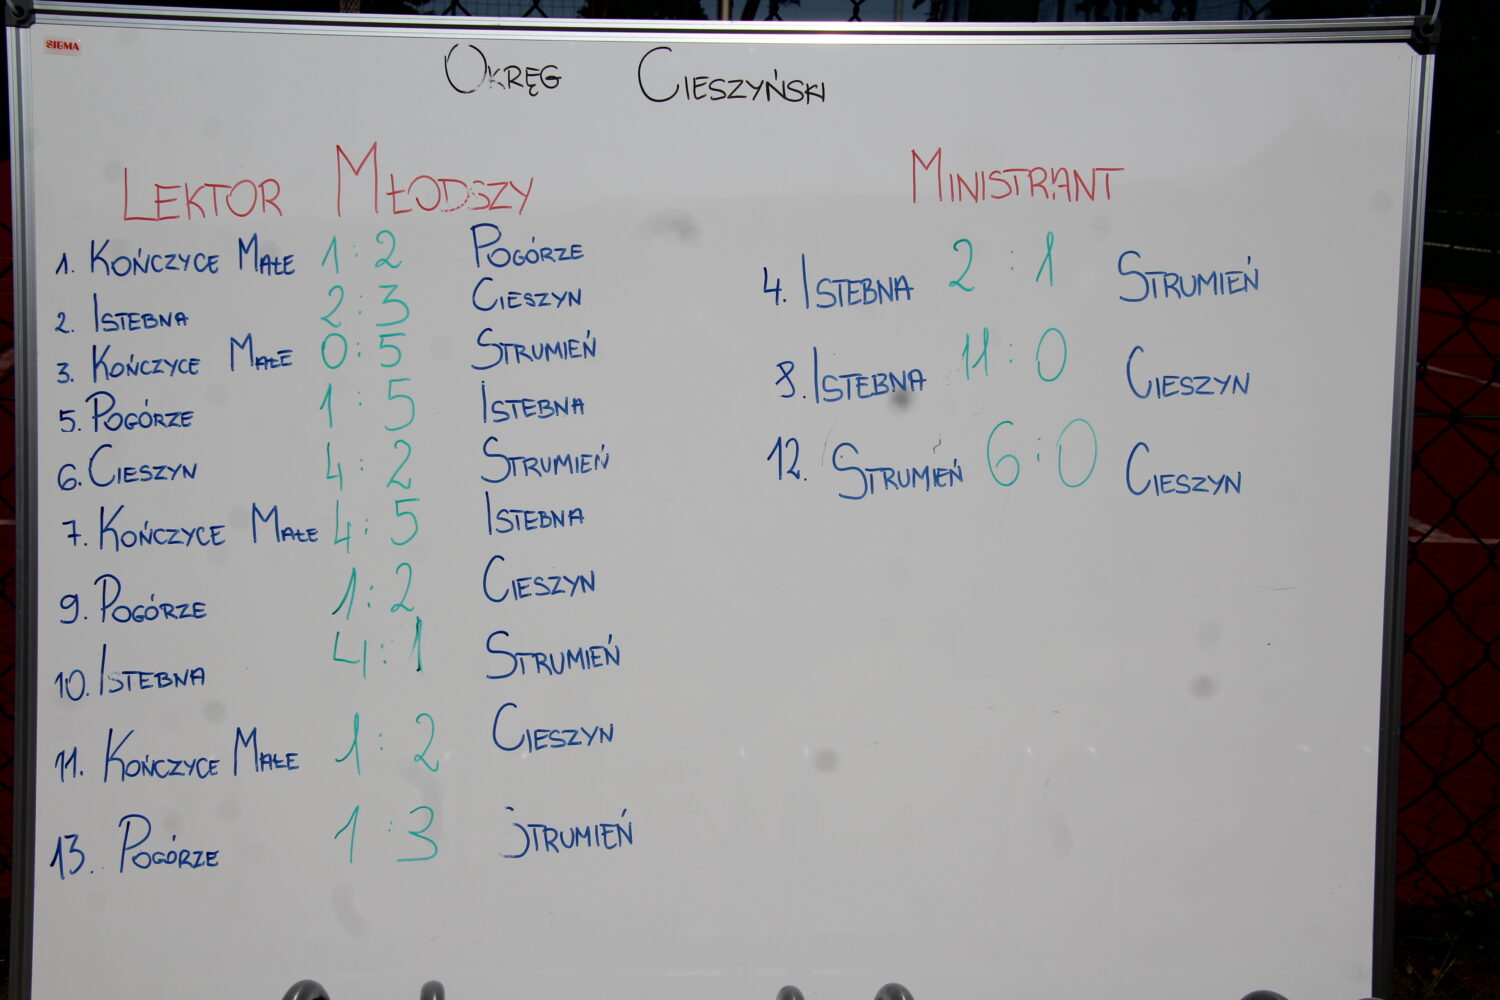 SIGMA
OKRĘG CIESZYŃSKI
LEKTOR MŁODSZY
1. KOŃCZYCE MAŁE 1:2 POGÓRZE
2. ISTEBNA 2:3 CIESZYN
3. KOŃCZYCE MAŁE 0:5 STRUMIEŃ
5. POGÓRZE 1:5 ISTEBNA
6. CIESZYN 4:2 STRUMIEŃ
7. KOŃCZYCE MAŁE 4:5 ISTEBNA
9. POGÓRZE 1:2 CIESZYN
10. ISTEBNA 4:1 STRUMIEŃ
11. KOŃCZYCE MAŁE 1:2 CIESZYN
13. POGÓRZE 1:3 STRUMIEŃ
MINISTRANT
4. ISTEBNA 2:1 STRUMIEŃ
8. ISTEBNA 11:0 CIESZYN
12. STRUMIEŃ 6:0 CIESZYN